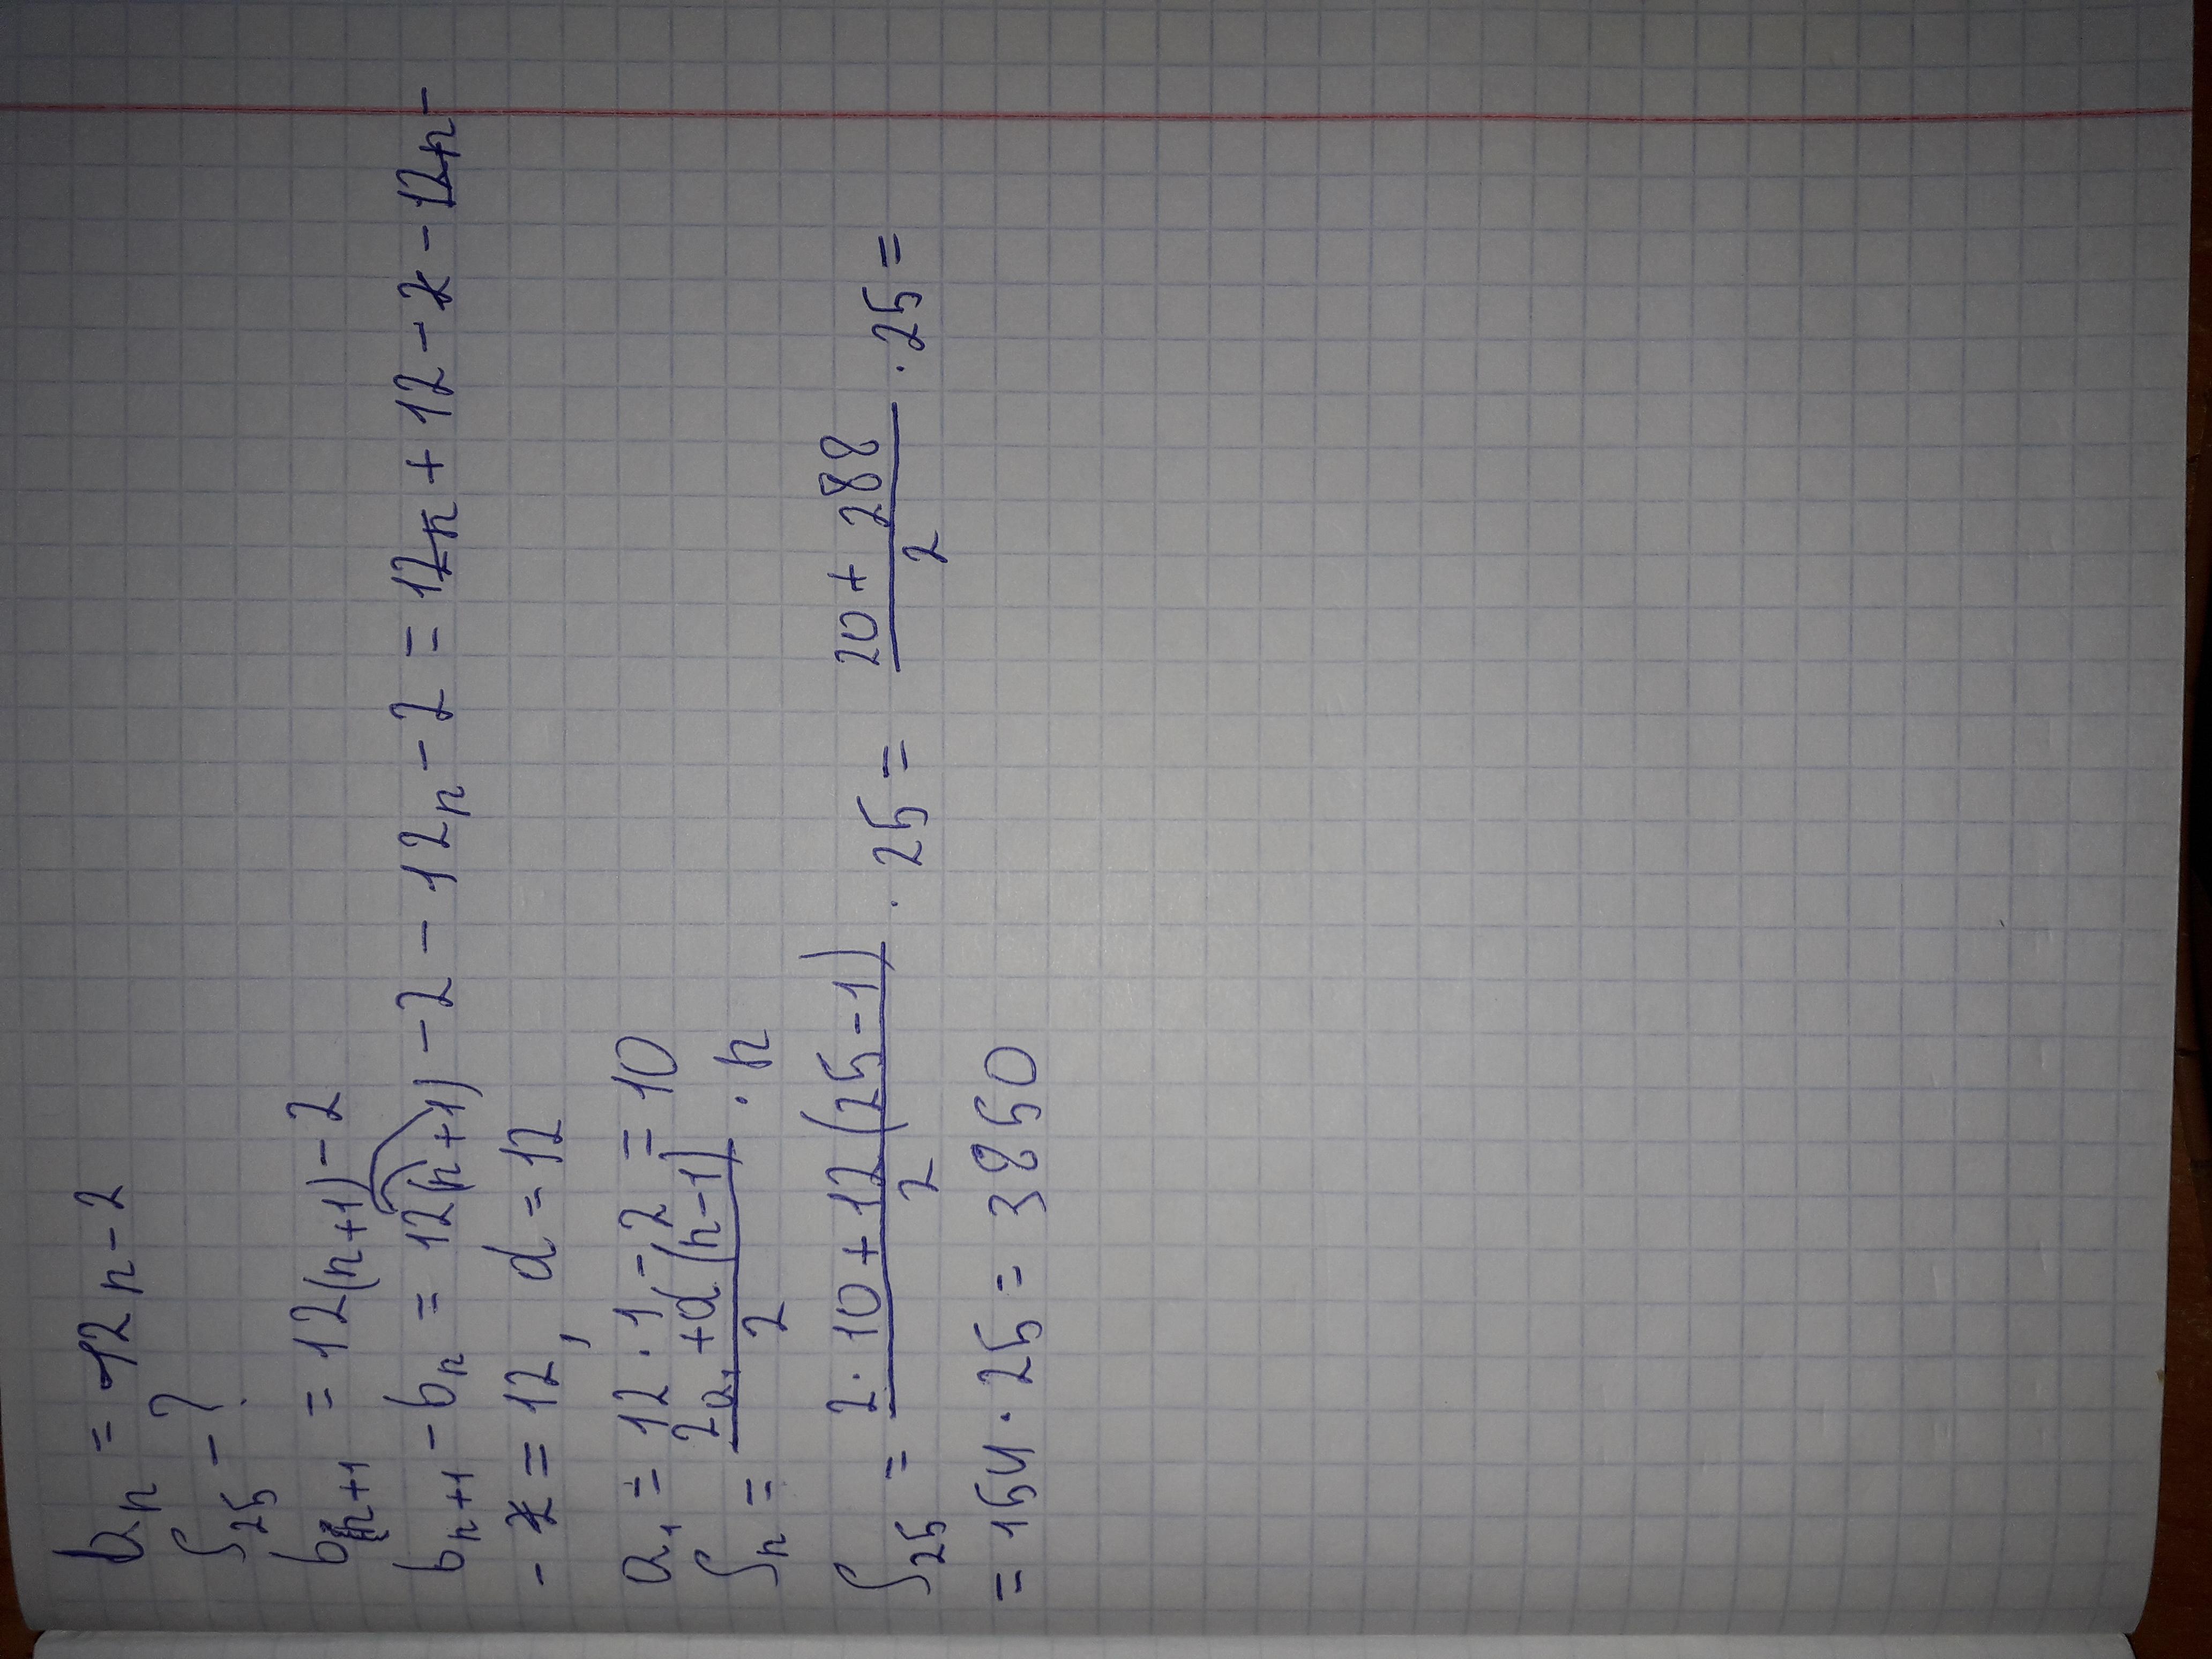 bₙ = 12n - 2
S₂₅ - ?
bₙ₊₁ = 12(n+1) - 2
bₙ₊₁ - bₙ = 12(n+1) - 2 - 12n - 2 = 12n + 12 - 2 - 12n -
- 2 = 12, d = 12
a₁ = 12 · 1 - 2 = 10
Sₙ = (2a₁ + d(n-1))/2 · n
S₂₅ = (2 · 10 + 12(25-1))/2 · 25 = (20 + 288)/2 · 25 =
= 154 · 25 = 3850